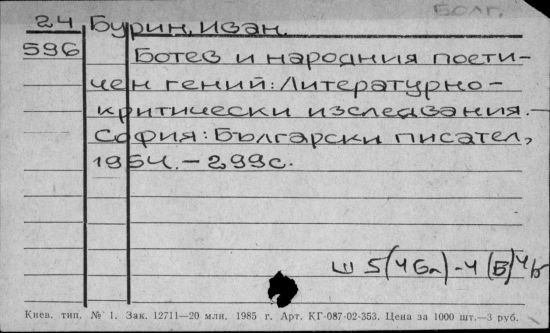 Болг.
24 Бурин, Иван.
596 Ботев и народния поети-
чен гений: Литературно-
критически изследвания.–
София: Български писател,
1954.–299с.
Ш5(4Бл)-4(Б)4/5
Киев. тип. № 1. Зак. 12711—20 млн. 1985 г. Арт. КГ-087-02-353. Цена за 1000 шт.—3 руб.